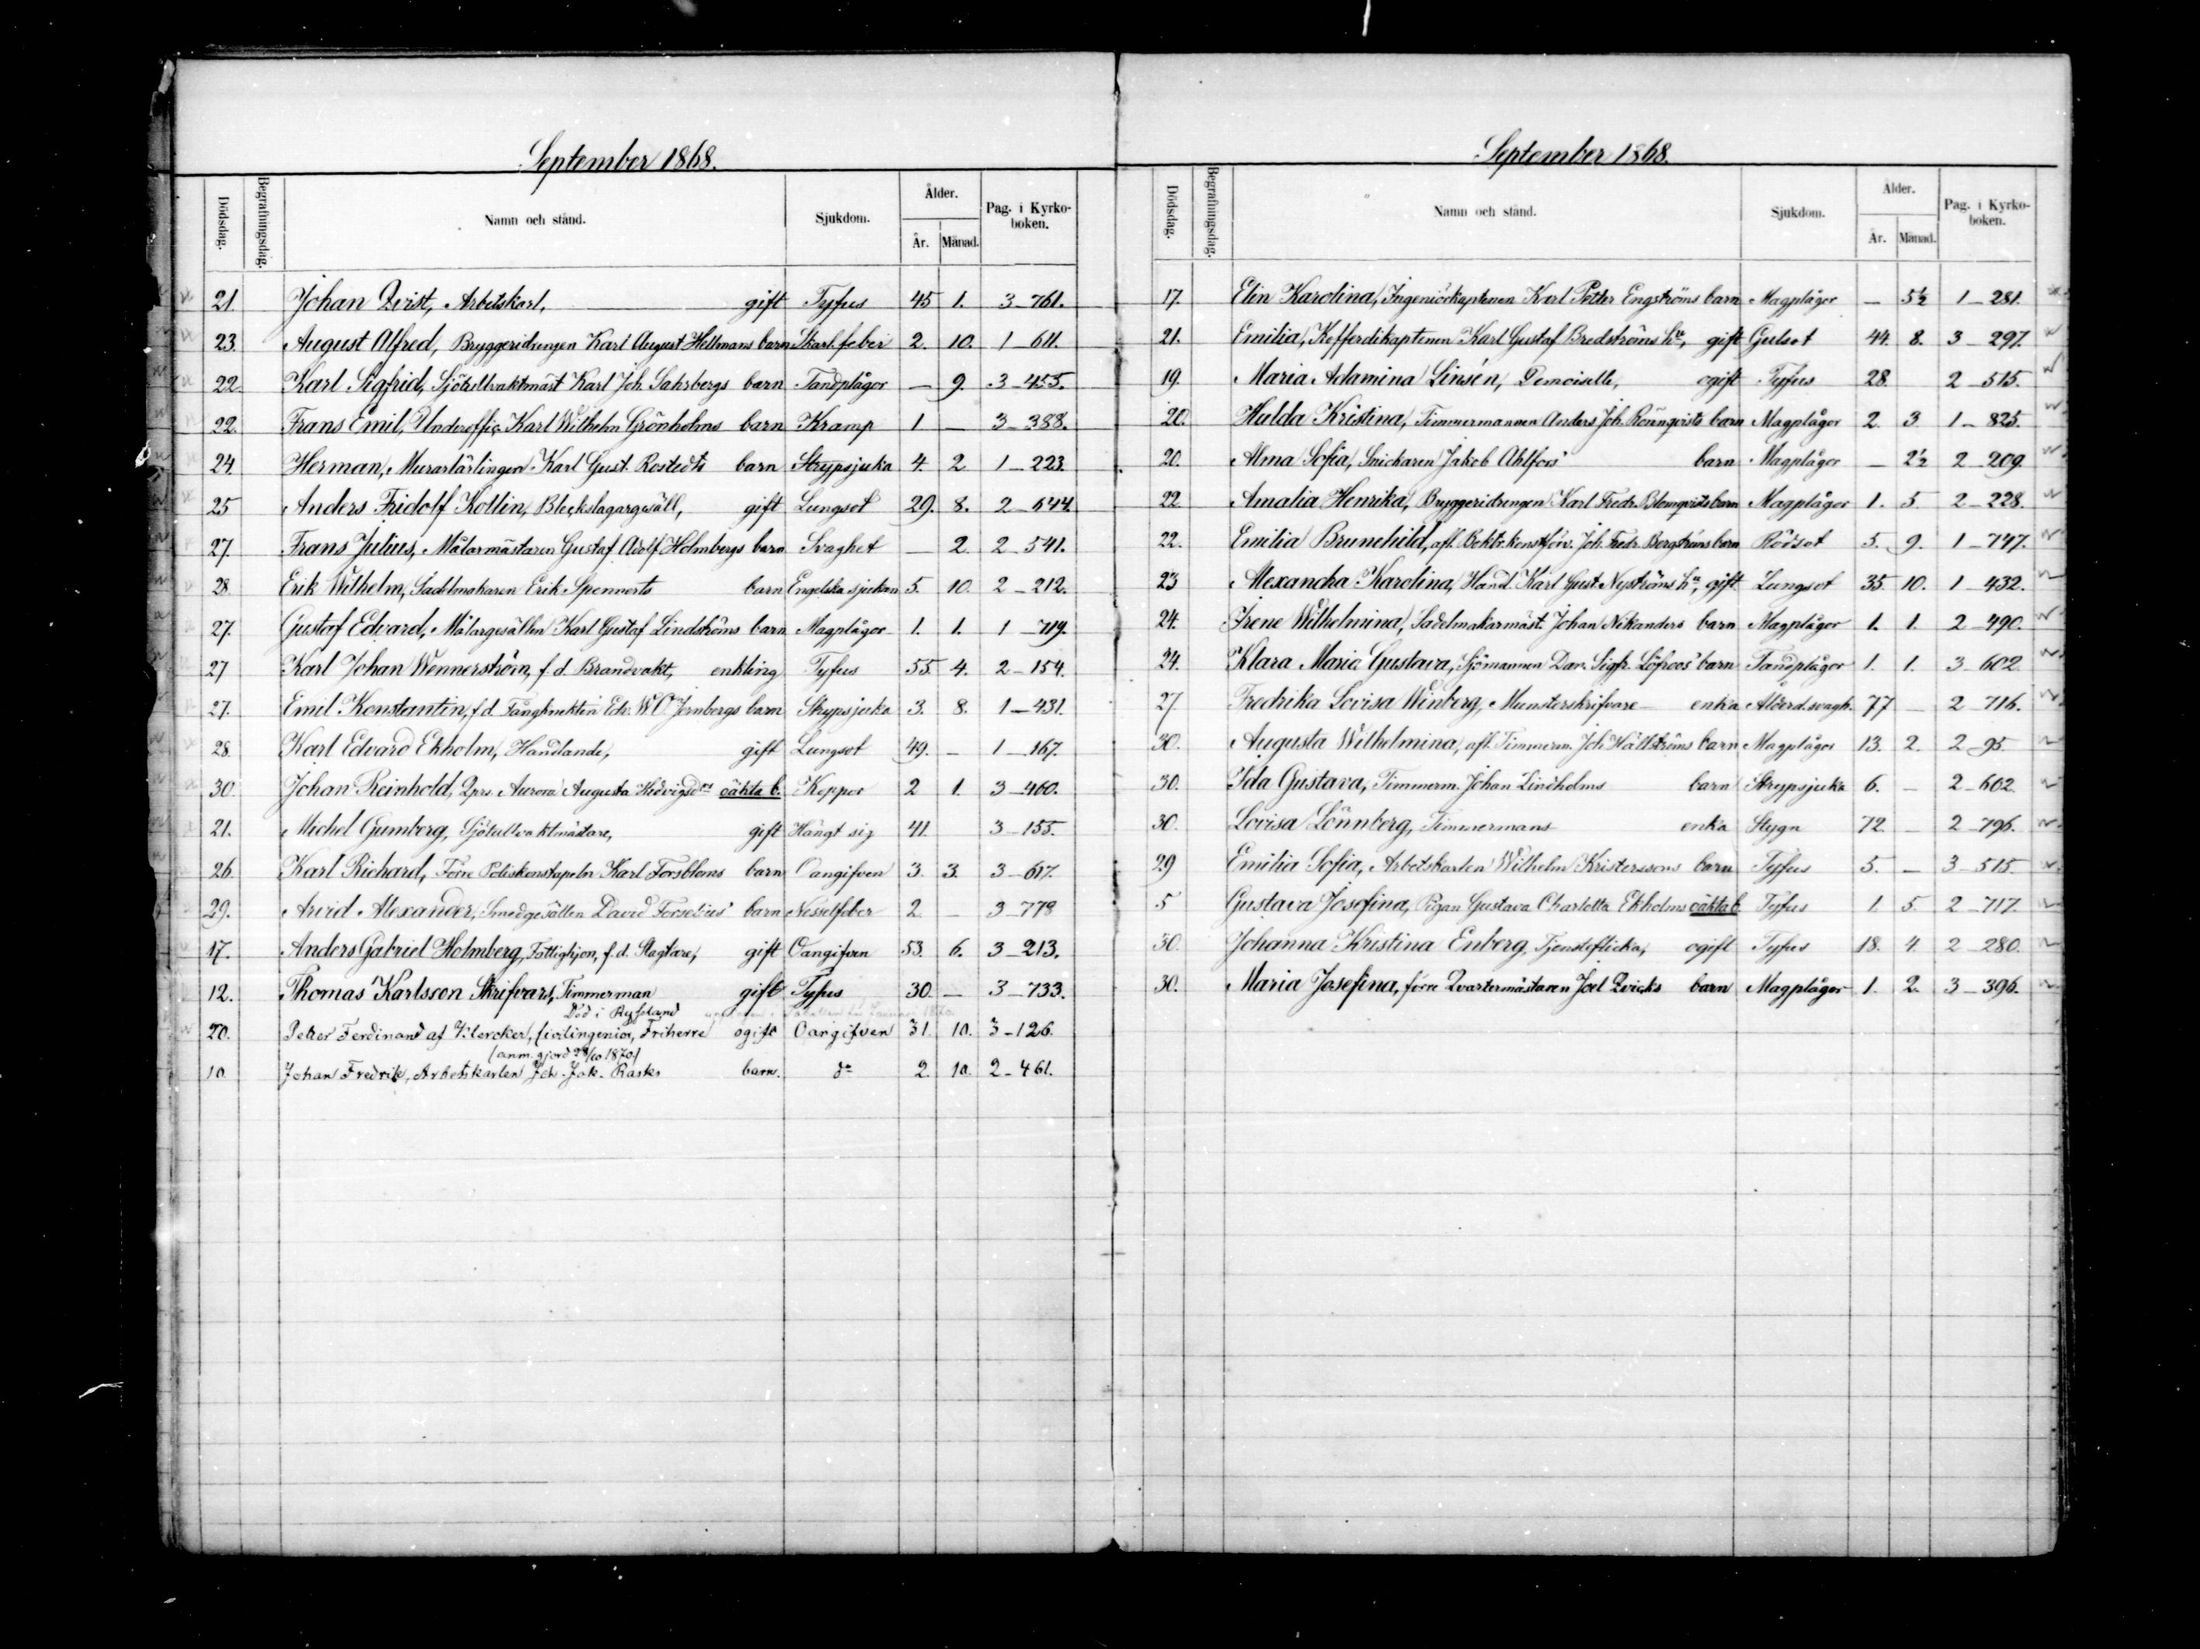 September 1868.
Dödsdag. Begrafningsdag. Namn och stånd. Sjukdom. Ålder. År. Månad. Pag. i Kyrko-boken.
21. Johan Qvist, Arbetskarl, gift Tyfus 45 1. 3-761.
23. August Alfred, Bryggeridrengen Karl August Hellmans barn Skarl.feber 2. 10. 1-611.
22. Karl Sigfrid, Sjötullvaktmäst Karl Joh. Sahrbergs barn Tandplågor — 9. 3-455.
22. Frans Emil, Underoffic Karl Wilhelm Grönholms barn Kramp 1 — 3-388.
24. Herman, Murarlärlingen Karl Gust. Rostedts barn Strypsjuka 4. 2. 1-223.
25 Anders Fridolf Kollin, Bleckslagargesäll, gift Lungsot 29. 8. 2-644.
27. Frans Julius, Målarmästaren Gustaf Adolf Holmbergs barn Svaghet — 2. 2-541.
28 Erik Wilhelm, Sadelmakaren Erik Spennerts barn Engelska sjukan 5. 10. 2-212.
27. Gustaf Edvard, Målargesällen Karl Gustaf Lindströms barn Magplågor 1. 1. 1-719.
27 Karl Johan Wennerström, f.d. Brandvakt, enkling Tyfus 55 4. 2-154.
27. Emil Konstantin, f.d. Fångknekten Edv. W O Jernbergs barn Strypsjuka 3. 8. 1-431.
28. Karl Edvard Ekholm, Handlande, gift Lungsot 49. — 1-167.
30. Johan Reinhold, Qprs. Aurora Augusta Hedvigsdrs oäkta b. Koppor 2 1. 3-460.
21. Michel Gumberg, Sjötullvaktmästare, gift Hängt sig 41. 3-155.
26. Karl Richard, Förre Poliskonstapeln Karl Forsbloms barn Oangifven 3. 3. 3-617.
29. Arvid Alexander, Smedgesällen David Forselius' barn Nesselfeber 2. — 3-778
17. Anders Gabriel Holmberg, Fattighjon, f.d. Slagtare, gift Oangifven 53. 6. 3-213.
12. Thomas Karlsson Skrifvars, Timmerman gift Tyfus 30. — 3-733.
Död i Ryssland
20. Petter Ferdinand af Klercker, Civilingeniör, Friherre ogift Oangifven 31. 10. 3-126.
(anm. gjord 28/10 1870)
10. Johan Fredrik, Arbetskarlen Joh. Jak. Rasks barn. do 2. 10. 2-461.
September 1868.
Dödsdag. Begrafningsdag. Namn och stånd. Sjukdom. Ålder. År. Månad. Pag. i Kyrko-boken.
17. Elin Karolina, Ingeniörkaptenen Karl Petter Engströms barn Magplågor — 5½ 1-281.
21. Emilia, Kofferdikaptenen Karl Gustaf Bredströms hu, gift Gulsot 44. 8. 3-297.
19. Maria Adamina Linsén, Demoiselle, ogift Tyfus 28. 2-515.
20. Hulda Kristina, Timmermannen Anders Joh. Rönnqvists barn Magplågor 2. 3 1-825.
20. Alma Sofia, Snickaren Jakob Ahlfors' barn Magplågor — 2½ 2-209.
22. Amalia Henrika, Bryggeridrengen Karl Fredr. Blomqvists barn Magplågor 1. 5. 2-228.
22. Emilia Brunehild, afl. Boktr.konstförv. Joh. Fredr. Bergströms barn Rödsot 5. 9. 1-747.
23 Alexandra Karolina, Hand. Karl Gust. Nyströms hu, gift Lungsot 35. 10. 1-432.
24. Irene Wilhelmina, Sadelmakarmäst. Johan Nikanders barn Magplågor 1. 1. 2-490.
24. Klara Maria Gustava, Sjömannen Dav. Sigfr. Löfroos' barn Tandplågor 1. 1. 3-602.
27 Fredrika Lovisa Winberg, Munsterskrifvare enka Ålderd.svagh. 77 — 2-716.
30. Augusta Wilhelmina, afl. Timmerm. Joh. Hällströms barn Magplågor 13. 2. 2-95.
30. Ida Gustava, Timmerm. Johan Lindholms barn Strypsjuka 6. — 2-602.
30. Lovisa Lönnberg, Timmermans enka Stygn 72. — 2-796.
29 Emilia Sofia, Arbetskarlen Wilhelm Kristerssons barn Tyfus 5. — 3-515.
5 Gustava Josefina, Pigan Gustava Charlotta Ekholms oäkta b. Tyfus 1. 5. 2-717.
30. Johanna Kristina Enberg, Tjensteflicka, ogift Tyfus 18. 4. 2-280.
30. Maria Josefina, förre Qvartermästaren Joel Qvicks barn Magplågor 1. 2. 3-396.